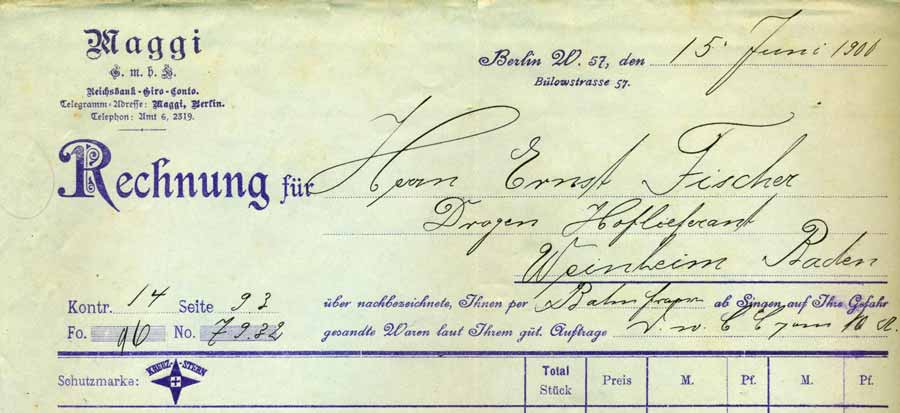 Maggi
G. m. b. H.
Reichsbank-Giro-Conto.
Telegramm-Adresse: Maggi, Berlin.
Telephon: Amt 6, 2319.
Berlin W. 57, den 15. Juni 1900
Bülowstrasse 57.
Rechnung für Herrn Ernst Fischer
Drogen Hoflieferant
Weinheim Baden
Kontr. 14 Seite 93
Fo. 96 No. 7932
über nachbezeichnete, Ihnen per Bahn ab Singen auf Ihre Gefahr
gesandte Waren laut Ihrem güt. Auftrage
Schutzmarke: KREUZ-STERN
Total Stück Preis M. Pf. M. Pf.